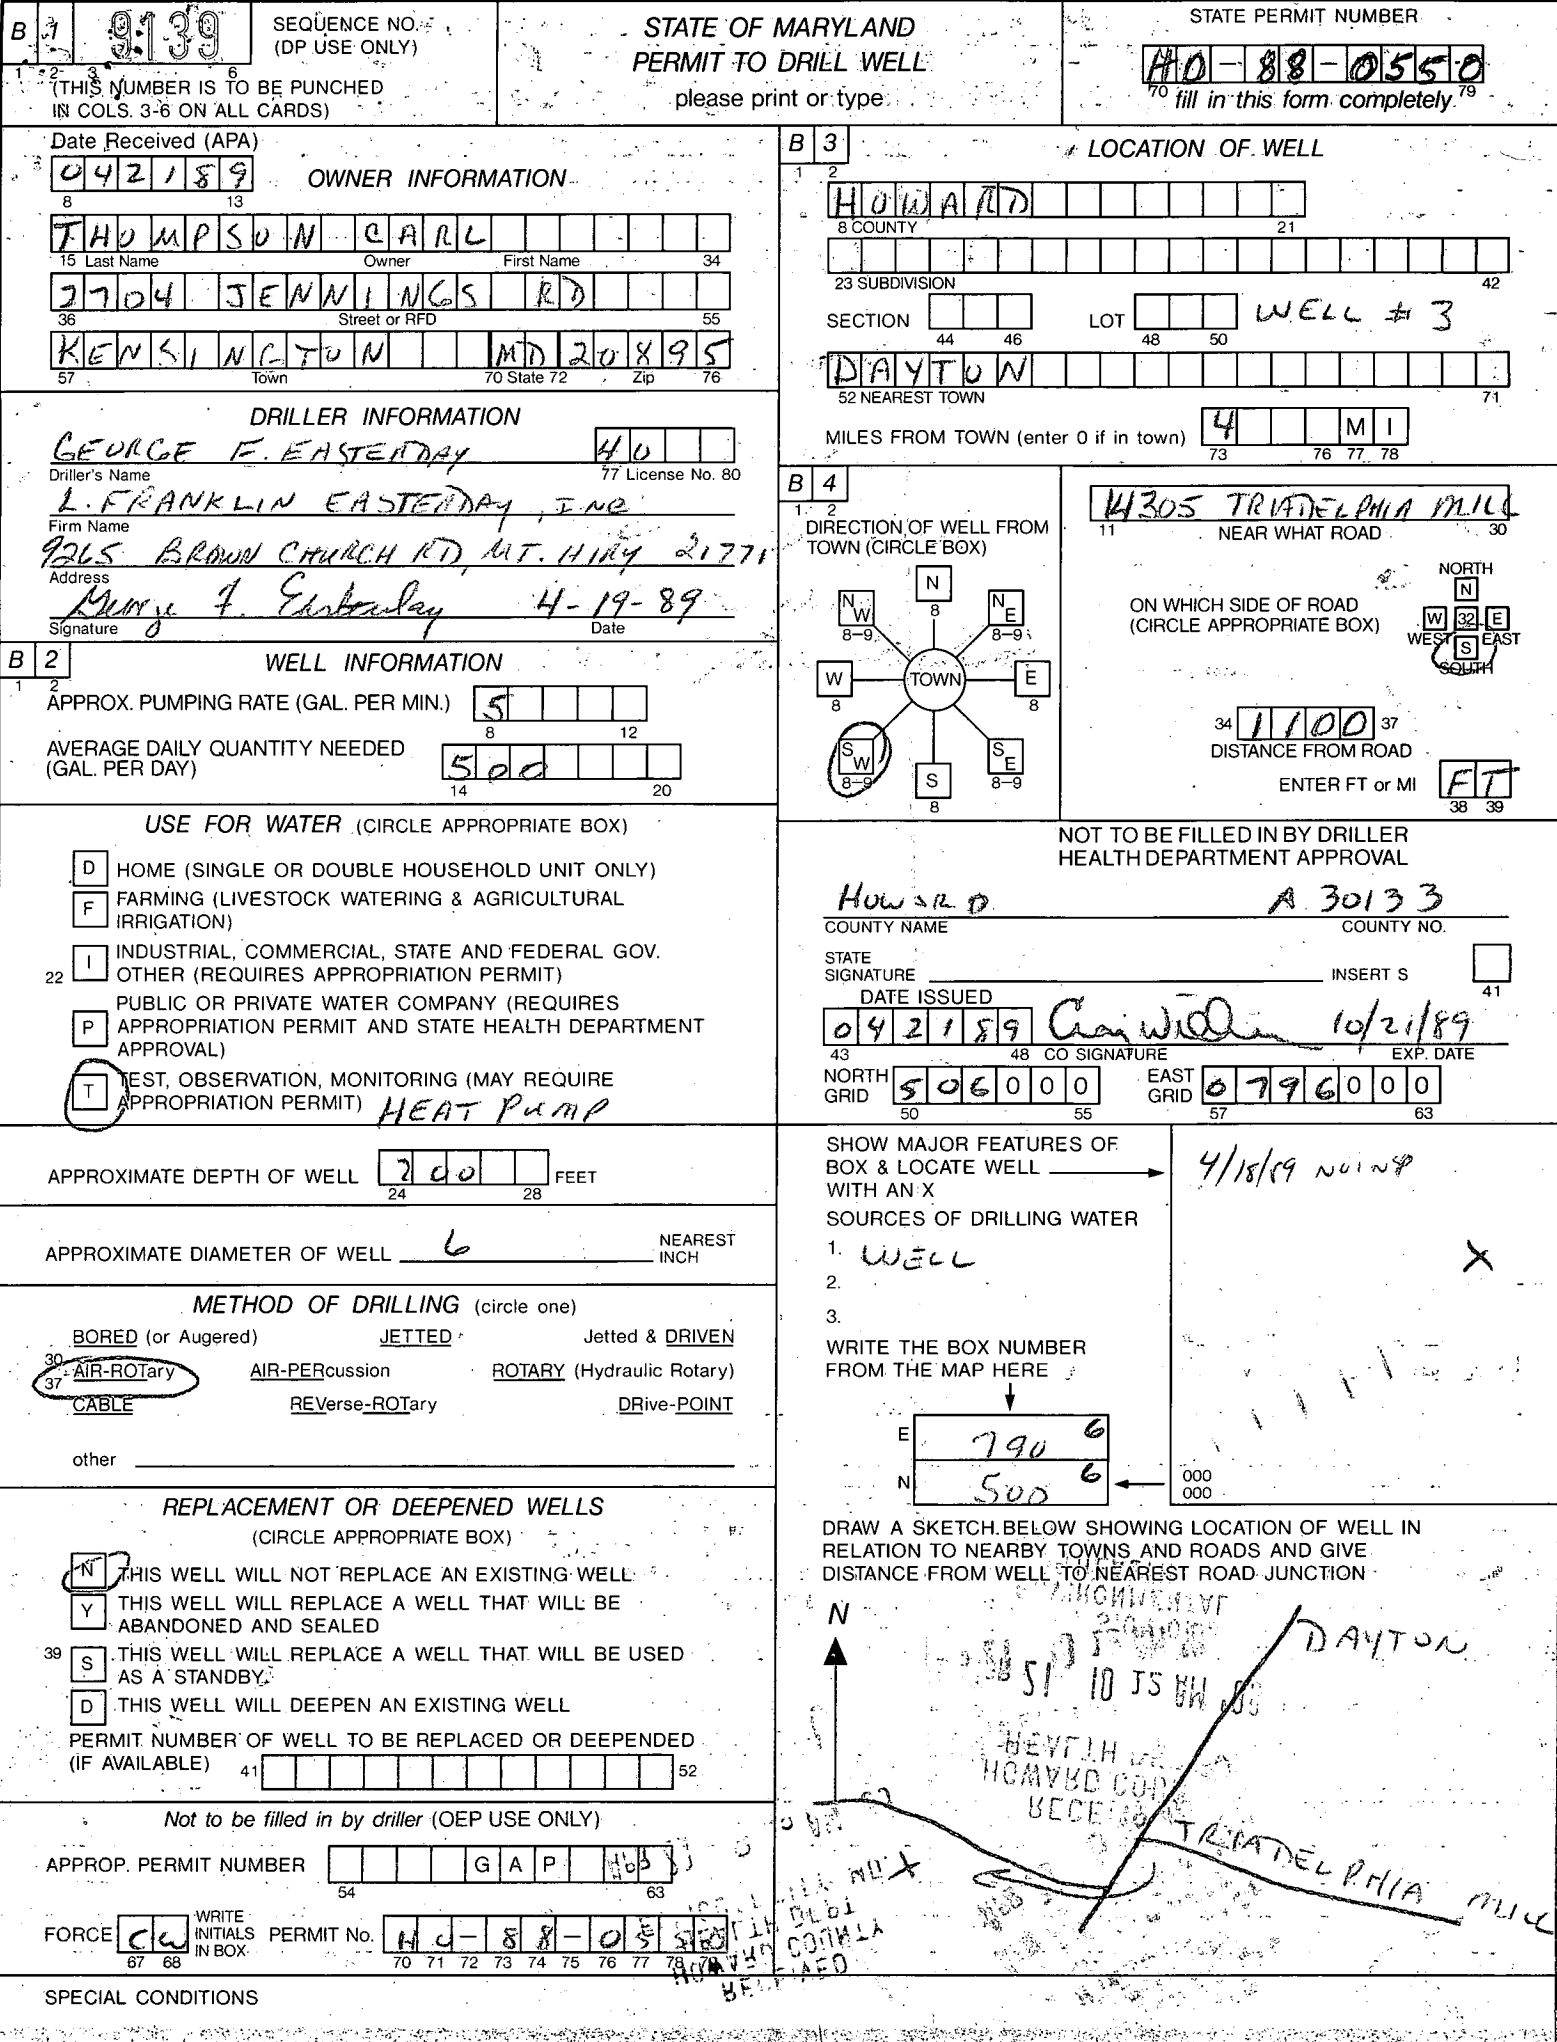 B 1 9139 SEQUENCE NO. (DP USE ONLY)
1 2 3 6
(THIS NUMBER IS TO BE PUNCHED
IN COLS. 3-6 ON ALL CARDS)
STATE OF MARYLAND
PERMIT TO DRILL WELL
please print or type
STATE PERMIT NUMBER
HO-88-0550
70 fill in this form completely. 79
Date Received (APA)
042189
8 13
OWNER INFORMATION
THOMPSON CARL
15 Last Name Owner First Name 34
2704 JENNINGS RD
36 Street or RFD 55
KENSINGTON MD 20895
57 Town 70 State 72 Zip 76
DRILLER INFORMATION
GEORGE F. EASTERDAY 40
Driller's Name 77 License No. 80
L. FRANKLIN EASTERDAY, INC
Firm Name
9265 BROWN CHURCH RD, MT. AIRY 21771
Address
George F. Easterday 4-19-89
Signature Date
B 2 WELL INFORMATION
1 2
APPROX. PUMPING RATE (GAL. PER MIN.) 5
8 12
AVERAGE DAILY QUANTITY NEEDED
(GAL. PER DAY) 500
14 20
USE FOR WATER (CIRCLE APPROPRIATE BOX)
D HOME (SINGLE OR DOUBLE HOUSEHOLD UNIT ONLY)
F FARMING (LIVESTOCK WATERING & AGRICULTURAL
IRRIGATION)
22 I INDUSTRIAL, COMMERCIAL, STATE AND FEDERAL GOV.
OTHER (REQUIRES APPROPRIATION PERMIT)
P PUBLIC OR PRIVATE WATER COMPANY (REQUIRES
APPROPRIATION PERMIT AND STATE HEALTH DEPARTMENT
APPROVAL)
T TEST, OBSERVATION, MONITORING (MAY REQUIRE
APPROPRIATION PERMIT) HEAT PUMP
APPROXIMATE DEPTH OF WELL 200 FEET
24 28
APPROXIMATE DIAMETER OF WELL 6 NEAREST
INCH
METHOD OF DRILLING (circle one)
BORED (or Augered) JETTED Jetted & DRIVEN
30 AIR-ROTary AIR-PERcussion ROTARY (Hydraulic Rotary)
37 CABLE REVerse-ROTary DRive-POINT
other
REPLACEMENT OR DEEPENED WELLS
(CIRCLE APPROPRIATE BOX)
N THIS WELL WILL NOT REPLACE AN EXISTING WELL
Y THIS WELL WILL REPLACE A WELL THAT WILL BE
ABANDONED AND SEALED
39 S THIS WELL WILL REPLACE A WELL THAT WILL BE USED
AS A STANDBY
D THIS WELL WILL DEEPEN AN EXISTING WELL
PERMIT NUMBER OF WELL TO BE REPLACED OR DEEPENDED
(IF AVAILABLE) 41 52
Not to be filled in by driller (OEP USE ONLY)
APPROP. PERMIT NUMBER GAP
54 63
FORCE CW WRITE INITIALS IN BOX PERMIT No. HO-88-0550
67 68 70 71 72 73 74 75 76 77 78 79
SPECIAL CONDITIONS
B 3 LOCATION OF WELL
1 2
HOWARD
8 COUNTY 21
23 SUBDIVISION 42
SECTION LOT WELL # 3
44 46 48 50
DAYTON
52 NEAREST TOWN 71
MILES FROM TOWN (enter 0 if in town) 4 MI
73 76 77 78
B 4
1 2
DIRECTION OF WELL FROM
TOWN (CIRCLE BOX)
N
8
NW NE
8-9 8-9
W TOWN E
8 8
SW SE
8-9 8-9
S
8
14305 TRIADELPHIA MILL
11 NEAR WHAT ROAD 30
ON WHICH SIDE OF ROAD
(CIRCLE APPROPRIATE BOX)
NORTH
N
W 32 E
WEST S EAST
SOUTH
34 1100 37
DISTANCE FROM ROAD
ENTER FT or MI FT
38 39
NOT TO BE FILLED IN BY DRILLER
HEALTH DEPARTMENT APPROVAL
HOWARD A 30133
COUNTY NAME COUNTY NO.
STATE
SIGNATURE INSERT S
41
DATE ISSUED
042189 10/21/89
43 48 CO SIGNATURE EXP. DATE
NORTH GRID 506000 EAST GRID 0796000
50 55 57 63
SHOW MAJOR FEATURES OF
BOX & LOCATE WELL
WITH AN X
4/18/89
X
SOURCES OF DRILLING WATER
1. WELL
2.
3.
WRITE THE BOX NUMBER
FROM THE MAP HERE
E 790 6
N 500 6
000
000
DRAW A SKETCH BELOW SHOWING LOCATION OF WELL IN
RELATION TO NEARBY TOWNS AND ROADS AND GIVE
DISTANCE FROM WELL TO NEAREST ROAD JUNCTION
N
DAYTON
TRIADELPHIA MILL
X
RECEIVED
HOWARD COUNTY
HEALTH DEPT